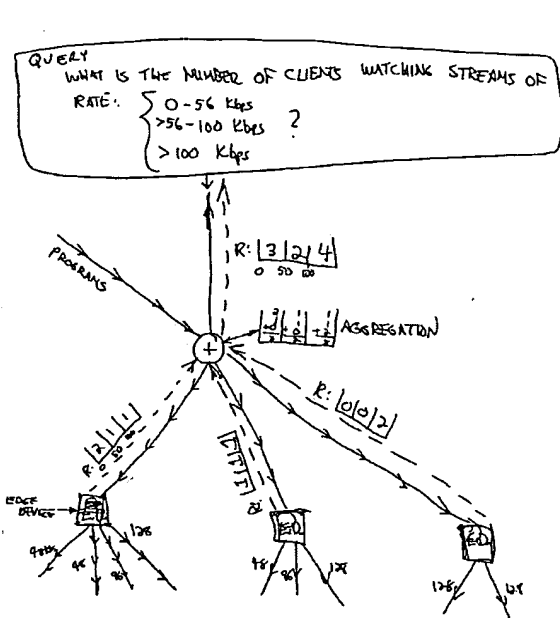 QUERY
WHAT IS THE NUMBER OF CLIENTS WATCHING STREAMS OF
RATE: 0-56 Kbps
>56-100 Kbps ?
>100 Kbps
PROGRAMS
R: |3|2|4|
0 50 100
+
AGGREGATION
R: |2|1|1|
0 50
R: |0|0|2|
|1|1|1|
R:
EDGE
DEVICE
ED
ED
48
96
128
48
96
128
128
128